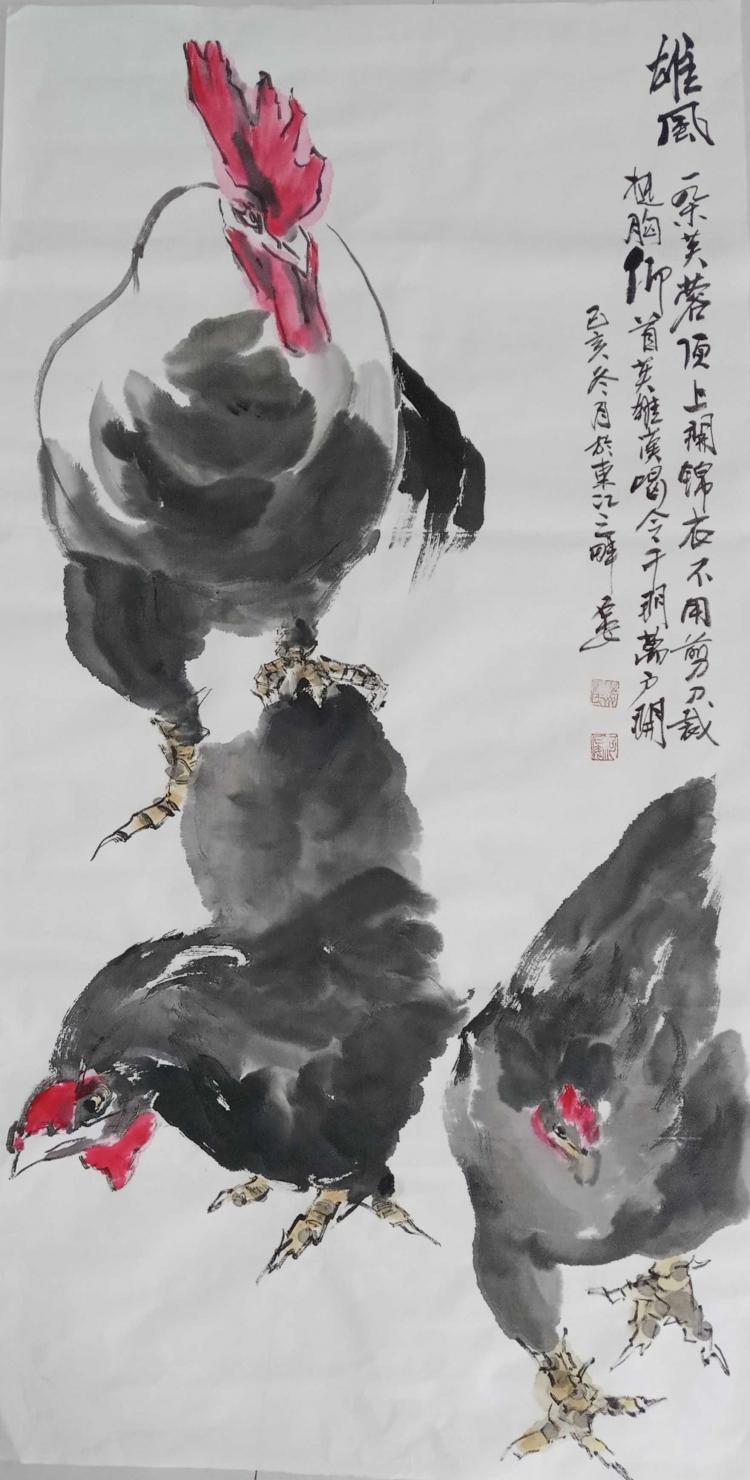 雄風
一朵芙蓉頂上開錦衣不用剪刀裁
挺胸仰首英雄漢喝令千門萬戶開
己亥冬月於東江畔